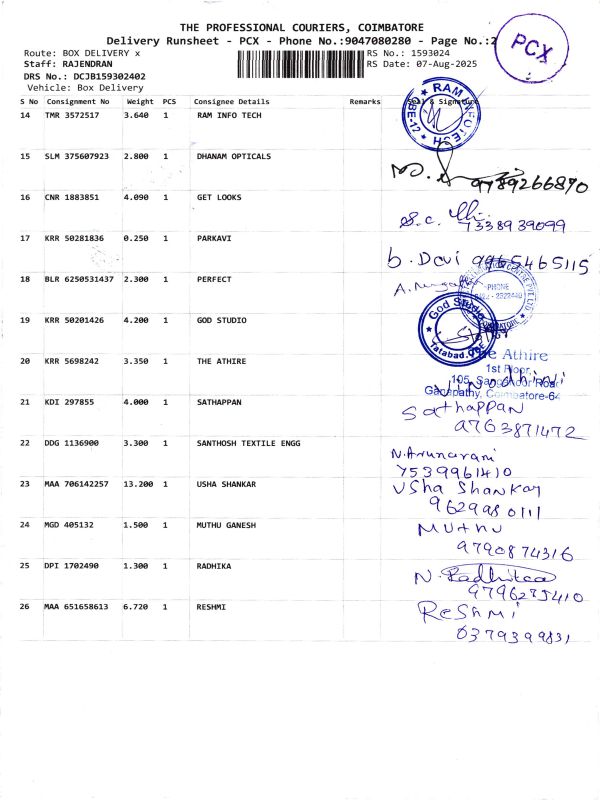 THE PROFESSIONAL COURIERS, COIMBATORE
Delivery Runsheet - PCX - Phone No.:9047080280 - Page No.:2
PCX
Route: BOX DELIVERY x
RS No.: 1593024
Staff: RAJENDRAN
RS Date: 07-Aug-2025
DRS No.: DCJB159302402
Vehicle: Box Delivery
S No Consignment No Weight PCS Consignee Details Remarks Seal & Signature
14 TMR 3572517 3.640 1 RAM INFO TECH
RAM INFOTECH CBE-12
15 SLM 375607923 2.800 1 DHANAM OPTICALS
9789266870
16 CNR 1883851 4.090 1 GET LOOKS
S.C.
7338939099
17 KRR 50281836 0.250 1 PARKAVI
b. Devi 9965465115
18 BLR 6250531437 2.300 1 PERFECT
PHONE
19 KRR 50201426 4.200 1 GOD STUDIO
God Studio
Tatabad.CBE
20 KRR 5698242 3.350 1 THE ATHIRE
The Athire
1st Floor,
105, Road
Ganapathy, Coimbatore-64
21 KDI 297855 4.000 1 SATHAPPAN
Sathappan
9763871472
22 DDG 1136900 3.300 1 SANTHOSH TEXTILE ENGG
N.Arunarani
7539961410
23 MAA 706142257 13.200 1 USHA SHANKAR
Usha Shankar
9629980111
24 MGD 405132 1.500 1 MUTHU GANESH
Muthu
9790874316
25 DPI 1702490 1.300 1 RADHIKA
N. Radhika
9796275410
26 MAA 651658613 6.720 1 RESHMI
Reshmi
0379399831